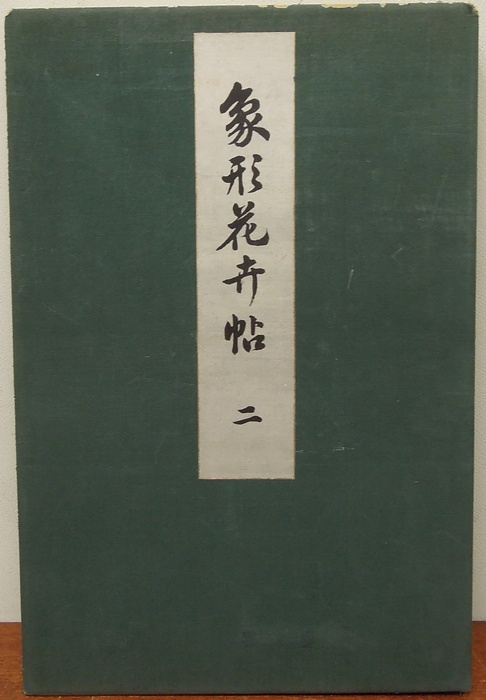 象形花卉帖 二